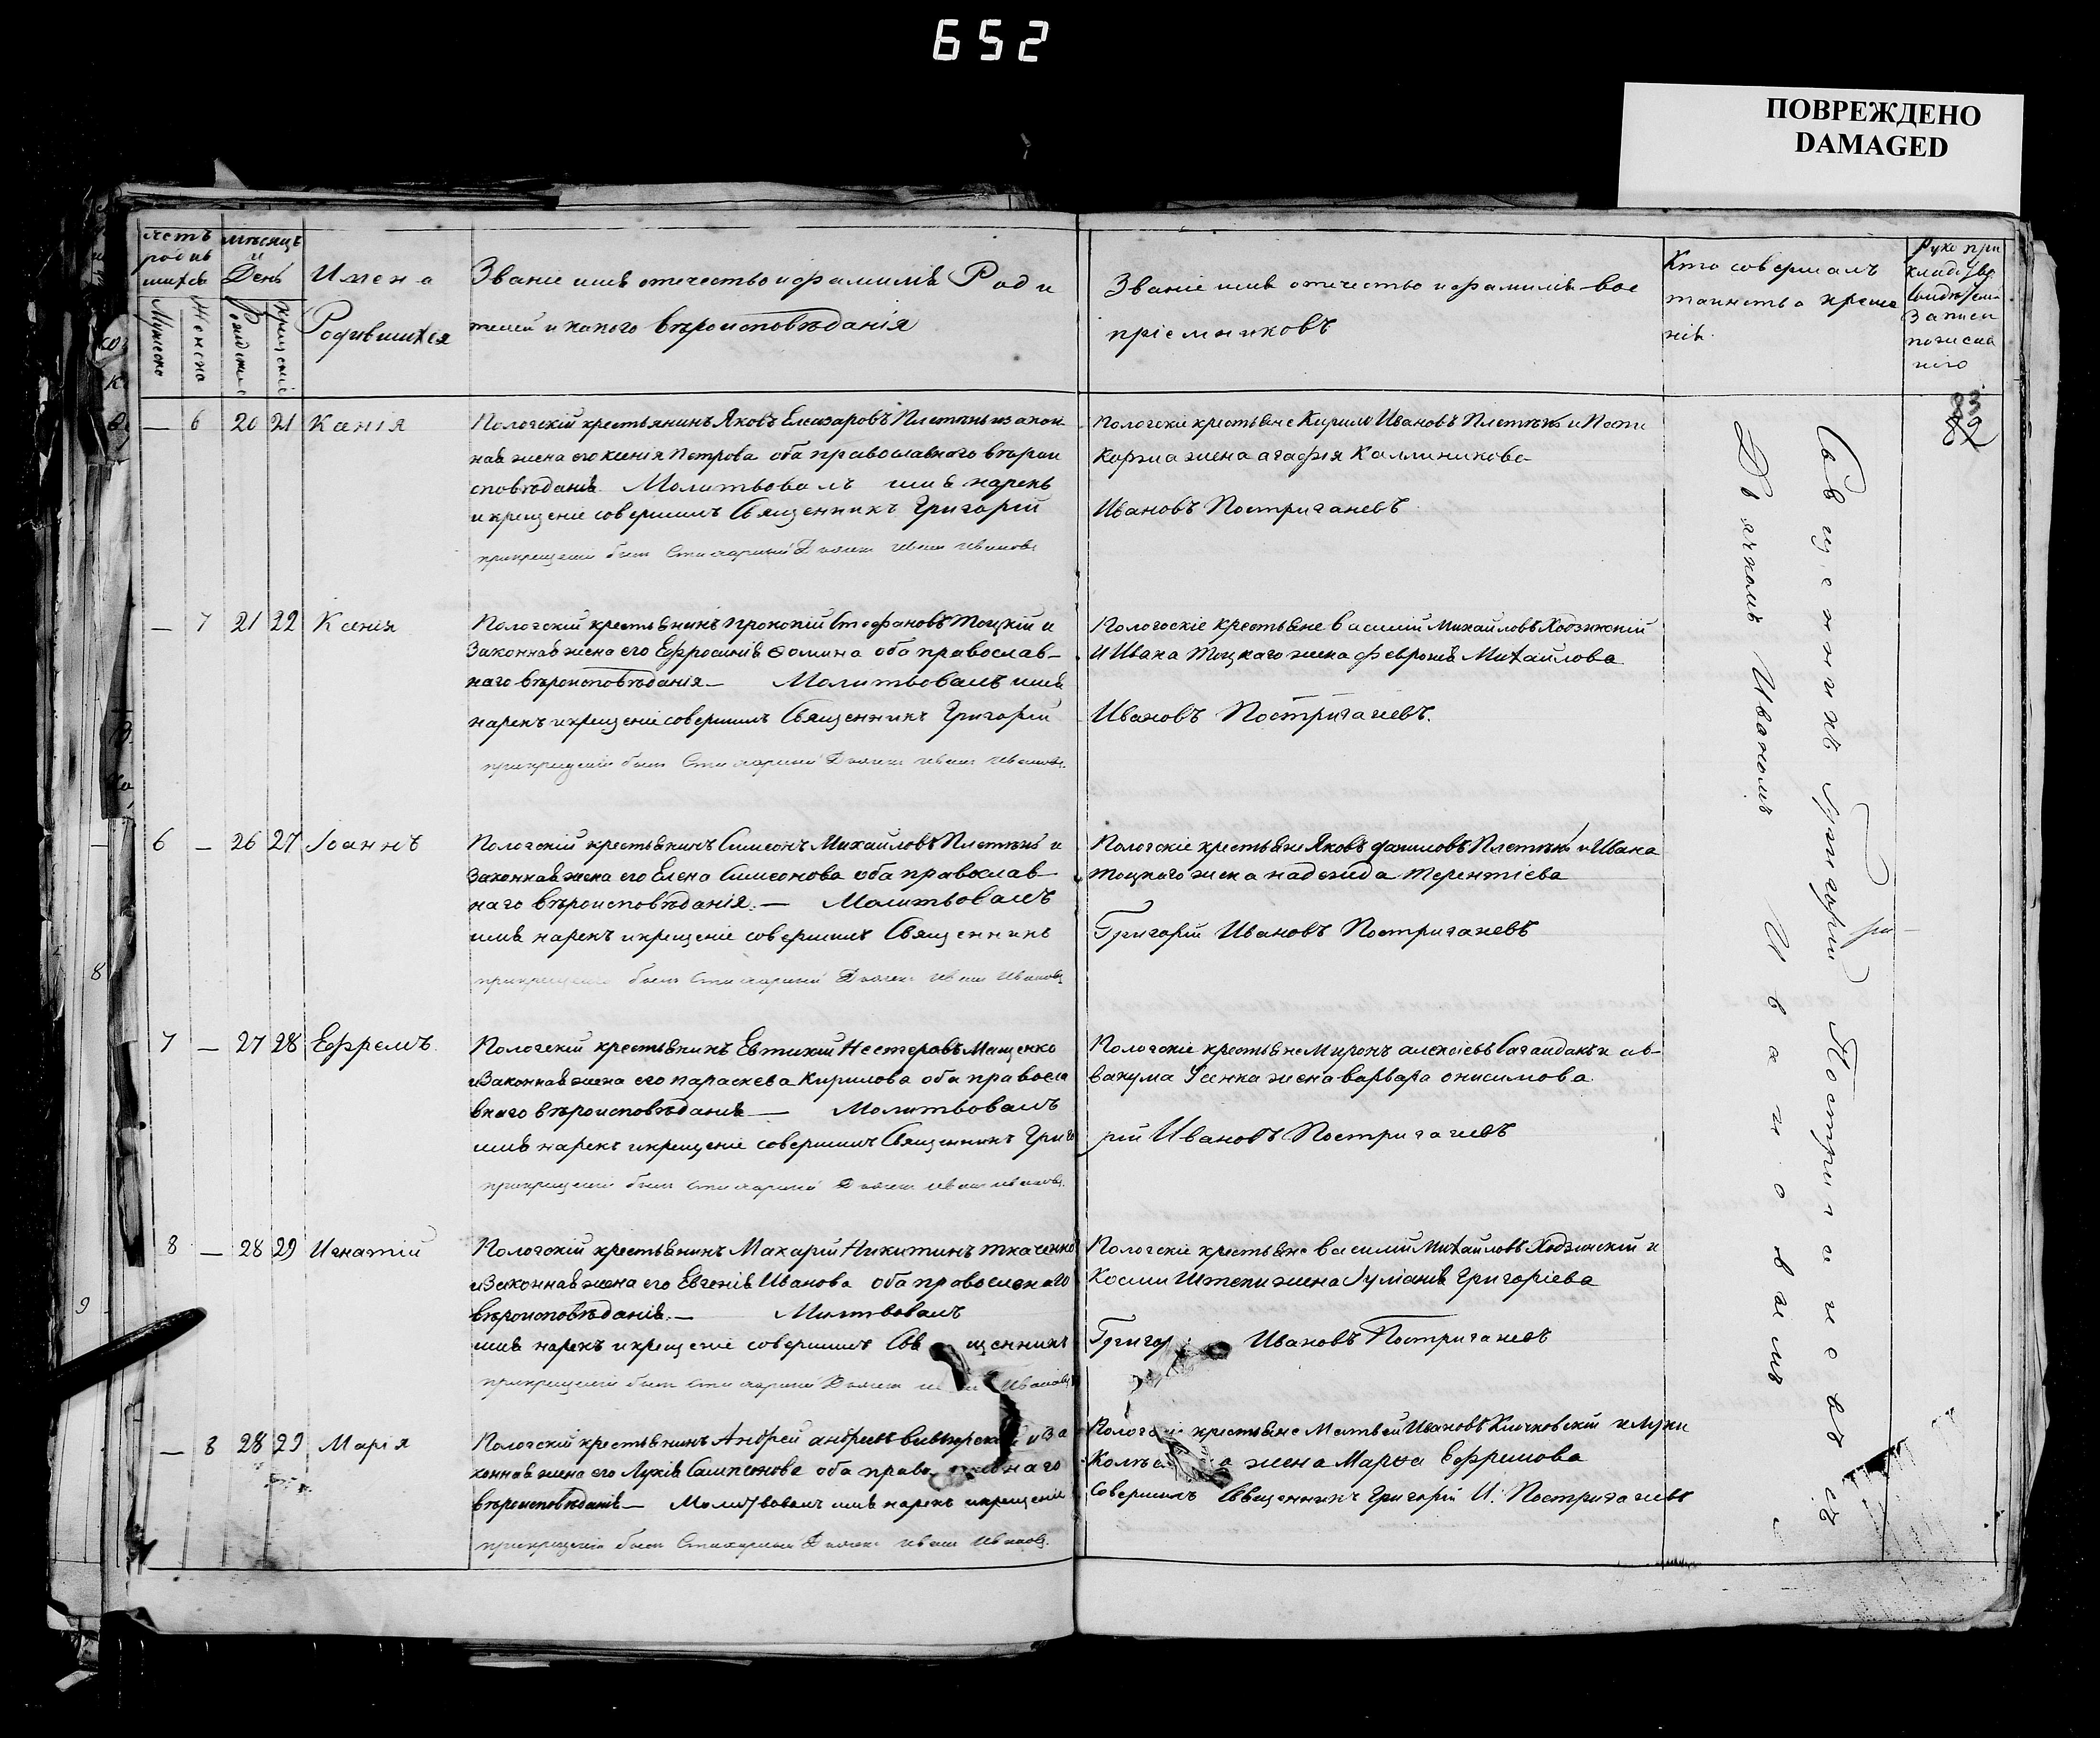 652
ПОВРЕЖДЕНО
DAMAGED
Мѣсяцъ и День
Имена Родившихся
Званіе имя отечество и фамилія Роди
телей и какого вѣроисповѣданія
Званіе имя отечество и фамилія вос
пріемниковъ
Кто совершалъ
таинство креще
нія
83
82
— 6 20 21 Ксенія
Пологскій крестьянинъ Яковъ Елеазаровъ Плетѣнь и закон
ная жена его Ксенія Петрова оба православнаго вѣрои
сповѣданія Молитвовалъ имя нарекъ
и крещеніе совершилъ Священникъ Григорій
прикрещеніи былъ Стихарный Дьячекъ Иванъ Ивановъ
Пологскіе крестьяне Кирило Ивановъ Плетѣнь и
жена агафія Каллиникова
Ивановъ Постригачевъ
— 7 21 22 Ксенія
Пологскій крестьянинъ Прокопій Стефановъ Тоцкій и
Законная жена его Ефросинія Ѳомина оба православ–
наго вѣроисповѣданія – Молитвовалъ имя
нарекъ и крещеніе совершилъ Священникъ Григорій
прикрещеніи былъ Стихарный Дьячекъ Иванъ Ивановъ
Пологскіе крестьяне василій Михайловъ Ходзинскій
И Ивана Тоцкаго жена февронія Михайлова
Ивановъ Постригачевъ.
6 – 26 27 Іоаннъ
Пологскій крестьянинъ Симеонъ Михайловъ Плетѣнь и
Законная жена его Елена Симеонова оба православ–
наго вѣроисповѣданія. — Молитвовалъ
имя нарекъ и крещеніе совершилъ Священникъ
прикрещеніи былъ Стихарный Дьячекъ Иванъ Ивановъ
Пологскіе крестьяне Яковъ даниловъ Плетѣнь и Ивана
Тоцкаго жена надежда Терентіева
Григорій Ивановъ Постригачевъ
7 – 27 28 Ефремъ
Пологскій крестьянинъ Евтихій Нестеровъ Мещенко
и Законная жена его параскева Кирилова оба правосла
внаго вѣроисповѣданія — Молитвовалъ
имя нарекъ и крещеніе совершилъ Священникъ Григо
прикрещеніи былъ Стихарный Дьячекъ Иванъ Ивановъ.
Пологскіе крестьяне Миронъ алексіевъ Сагайдакъ и ав–
вакума Усенка жена варвара онисимова
рій Ивановъ Постригачевъ
8 – 28 29 Игнатій
Пологскій крестьянинъ Макарій Никитинъ ткаченко
и Законная жена его Евгенія Иванова оба православнаго
вѣроисповѣданія. —
имя нарекъ и крещеніе совершилъ
прикрещеніи былъ Стихарный Дьячекъ Ивановъ
Пологскіе крестьяне василій Михайловъ Ходзинскій и
Косми Штепи жена Іуліанія Григоріева
Ивановъ Постригачевъ
— 8 28 29 Марія
Пологскій крестьянинъ Андрей андреевъ и За
конная жена его Лукія Сампсонова оба
вѣроисповѣданія – Молитвовалъ имя нарекъ и крещеніе
прикрещеніи былъ Стихарный Дьячекъ Иванъ Ивановъ.
крестьяне Матвей Ивановъ Кличковскій и Луки
жена Марѳа Ефремова
Совершилъ Священникъ Григорій И. Постригачевъ
Священникъ Григорій Постригачевъ съ
Дьячкомъ Иваномъ Ивановимъ
8
9